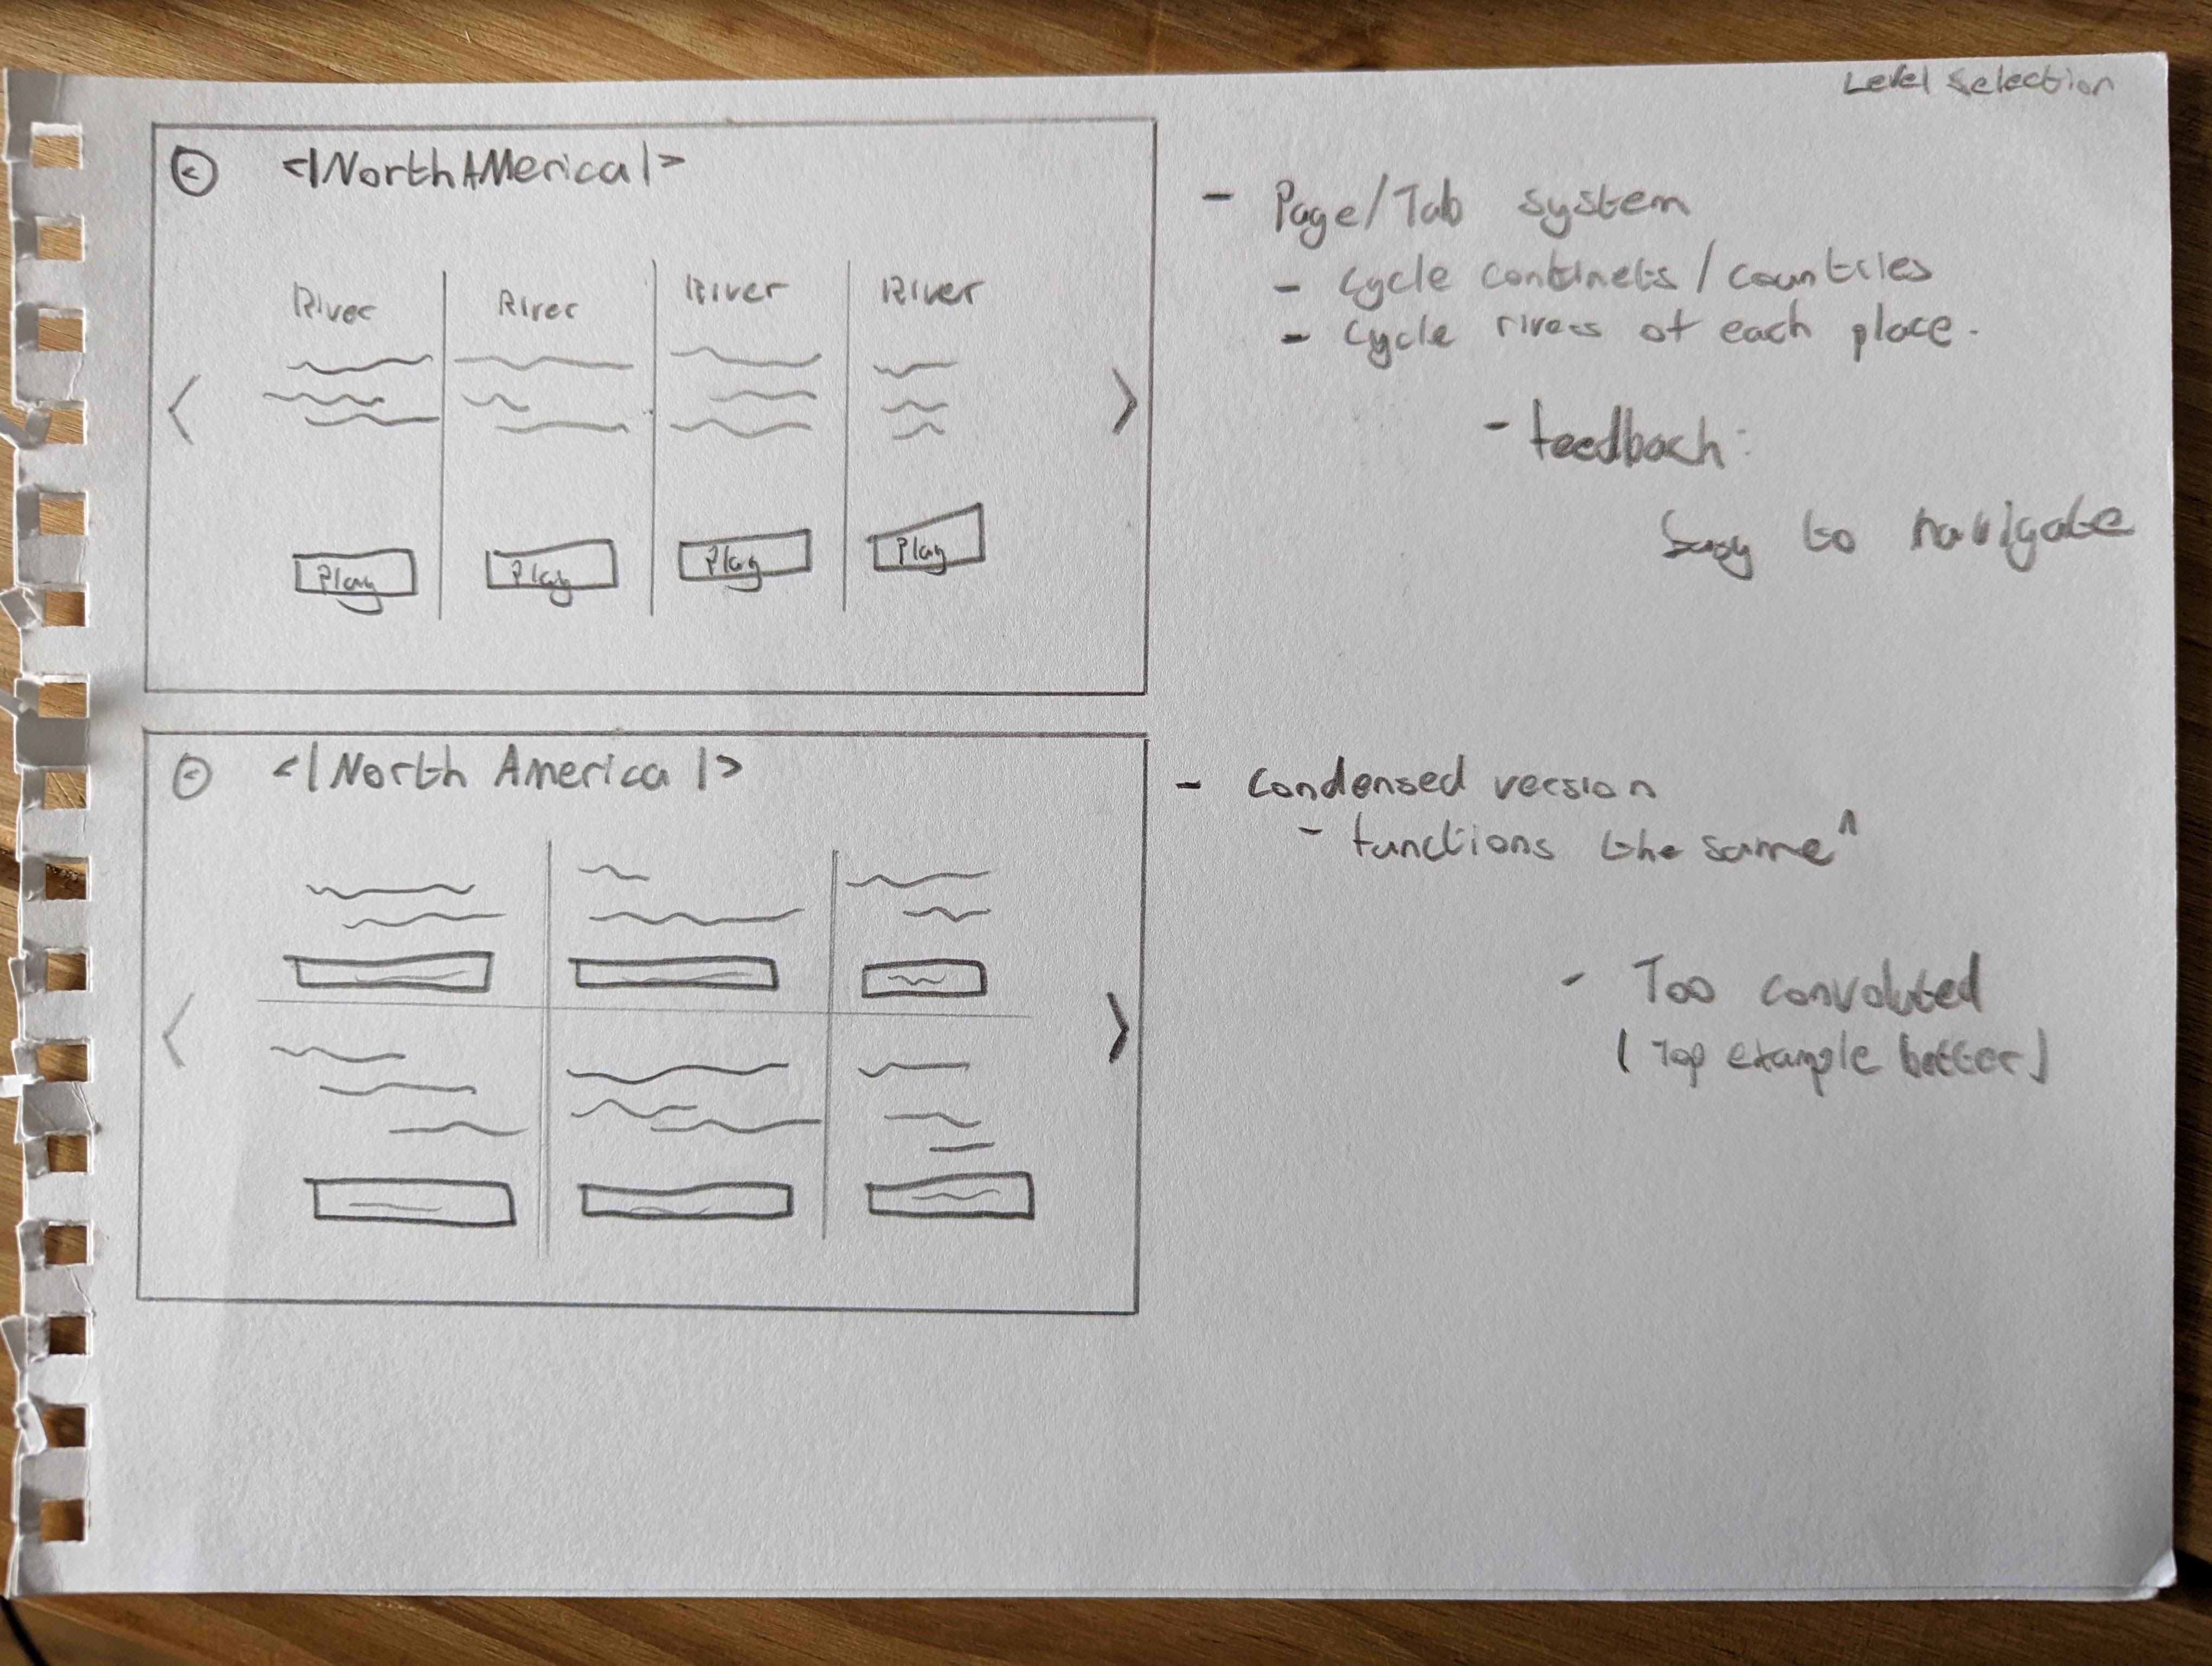 Level Selection
<|North AMerica|>
River River River River
Play Play Play Play
- Page/Tab system
- Cycle continets / countries
- Cycle rivers of each place.
- feedback:
Easy to navigate
<| North America |>
- Condensed version
- functions the same ^
- Too convoluted
(Top example better)